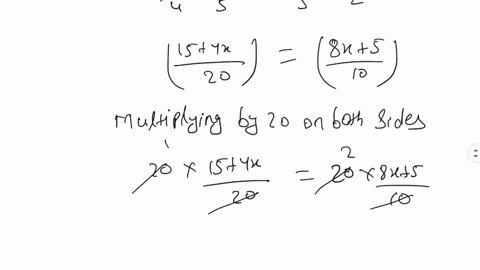 4 5 5 2
(15+4x/20) = (8x+5/10)
Multiplying by 20 on both sides
1 2
20 × 15+4x/20 = 20 × 8x+5/10